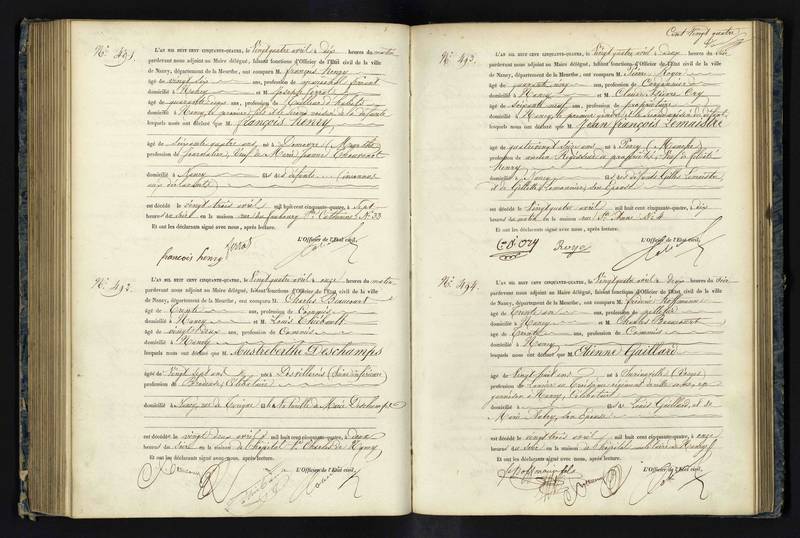 N.º 491.
L'AN MIL HUIT CENT CINQUANTE-QUATRE, le Vingtquatre avril à dix heures du matin
pardevant nous adjoint au Maire délégué, faisant fonctions d'Officier de l'Etat civil de la ville
de Nancy, département de la Meurthe, ont comparu M. François Henry
âgé de vingt six ans, profession de
domicilié à Nancy et M. Joseph
âgé de quarante ans, profession de
domicilié à Nancy, le premier fils et le second voisin de la défunte
lesquels nous ont déclaré que M. François Henry,
âgé de soixante quatre ans, né à Domevre (Meurthe)
profession de Journalier, Veuf de Marie Jeanne Thouvenot
domicilié à Nancy
est décédé le vingt trois avril mil huit cent cinquante-quatre, à sept
heures du soir en la maison rue du faubourg Ste Catherine N.º 33
Et ont les déclarants signé avec nous, après lecture.
L'Officier de l'Etat civil,
françois henry
N.º 492.
L'AN MIL HUIT CENT CINQUANTE-QUATRE, le Vingtquatre avril à onze heures du matin
pardevant nous adjoint au Maire délégué, faisant fonctions d'Officier de l'Etat civil de la ville
de Nancy, département de la Meurthe, ont comparu M. Charles Beaucourt
âgé de trente ans, profession de Commis
domicilié à Nancy et M. Louis Thiébault
âgé de vingt deux ans, profession de Commis
domicilié à Nancy
lesquels nous ont déclaré que M. Austreberthe Deschamps
âgé de Vingt sept ans né à (Seine inférieure)
profession de Brodeuse, Célibataire
domicilié à Nancy, rue de Grève et fille naturelle de Marie Deschamps
est décédé le vingt deux avril mil huit cent cinquante-quatre, à deux
heures du soir en la maison de l'hôpital St Charles de Nancy
Et ont les déclarants signé avec nous, après lecture.
L'Officier de l'Etat civil,
Cent vingt quatre
N.º 493.
L'AN MIL HUIT CENT CINQUANTE-QUATRE, le Vingtquatre avril à deux heures du soir
pardevant nous adjoint au Maire délégué, faisant fonctions d'Officier de l'Etat civil de la ville
de Nancy, département de la Meurthe, ont comparu M. Pierre Roger
âgé de quarante neuf ans, profession de Cordonnier
domicilié à Nancy et M. Claude Ory
âgé de soixante neuf ans, profession de propriétaire
domicilié à Nancy, le premier gendre et le second voisin du défunt
lesquels nous ont déclaré que M. Jean François Lemaistre
âgé de quatrevingt seize ans né à
profession de ancien Régisseur de propriétés, Veuf de
Henry
domicilié à Nancy fils de défunts Gilles Lemaistre
et de
est décédé le Vingtquatre avril mil huit cent cinquante-quatre, à dix
heures du matin en la maison rue St N.º 4
Et ont les déclarants signé avec nous, après lecture.
L'Officier de l'Etat civil,
Ory Roger
N.º 494.
L'AN MIL HUIT CENT CINQUANTE-QUATRE, le Vingtquatre avril à deux heures du soir
pardevant nous adjoint au Maire délégué, faisant fonctions d'Officier de l'Etat civil de la ville
de Nancy, département de la Meurthe, ont comparu M. Hoffmann
âgé de trente un ans, profession de
domicilié à Nancy et M. Charles Beaucourt
âgé de trente ans, profession de Commis
domicilié à Nancy
lesquels nous ont déclaré que M. Etienne Gaillard
âgé de Vingt huit ans né à (Vosges)
profession de Lancier au troisième régiment de cette arme, en
garnison à Nancy, Célibataire
domicilié à fils de Louis Gaillard et de
Marie son épouse
est décédé le vingt trois avril mil huit cent cinquante-quatre, à onze
heures du soir en la maison de l'hôpital militaire de Nancy
Et ont les déclarants signé avec nous, après lecture.
L'Officier de l'Etat civil,